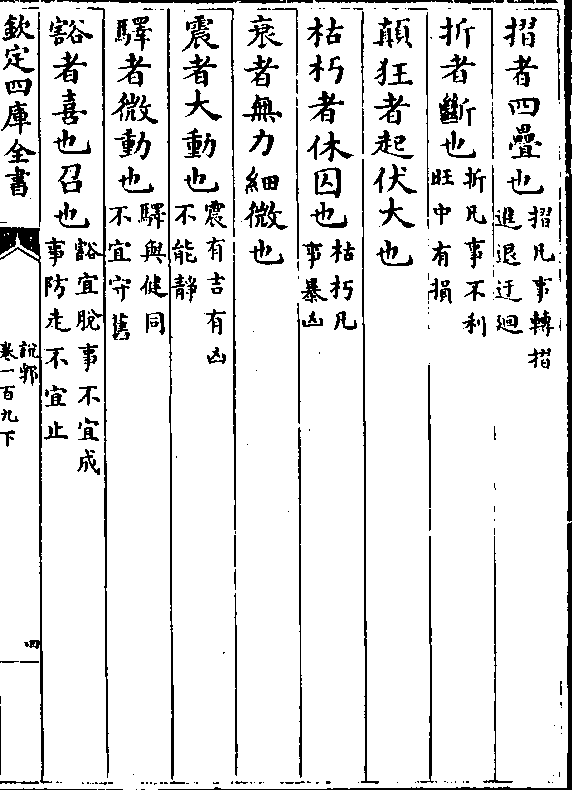 摺者四疊也摺凡事轉摺進退迂廻
折者斷也折凡事不利旺中有損
顛狂者起伏大也
枯朽者休囚也枯朽凡事暴凶
衰者無力細微也
震者大動也震有吉有凶不能靜
驛者微動也驛與健同不宜守舊
豁者喜也召也豁宜脫事不宜成事防走不宜止
欽定四庫全書
說郛
卷一百九下
四